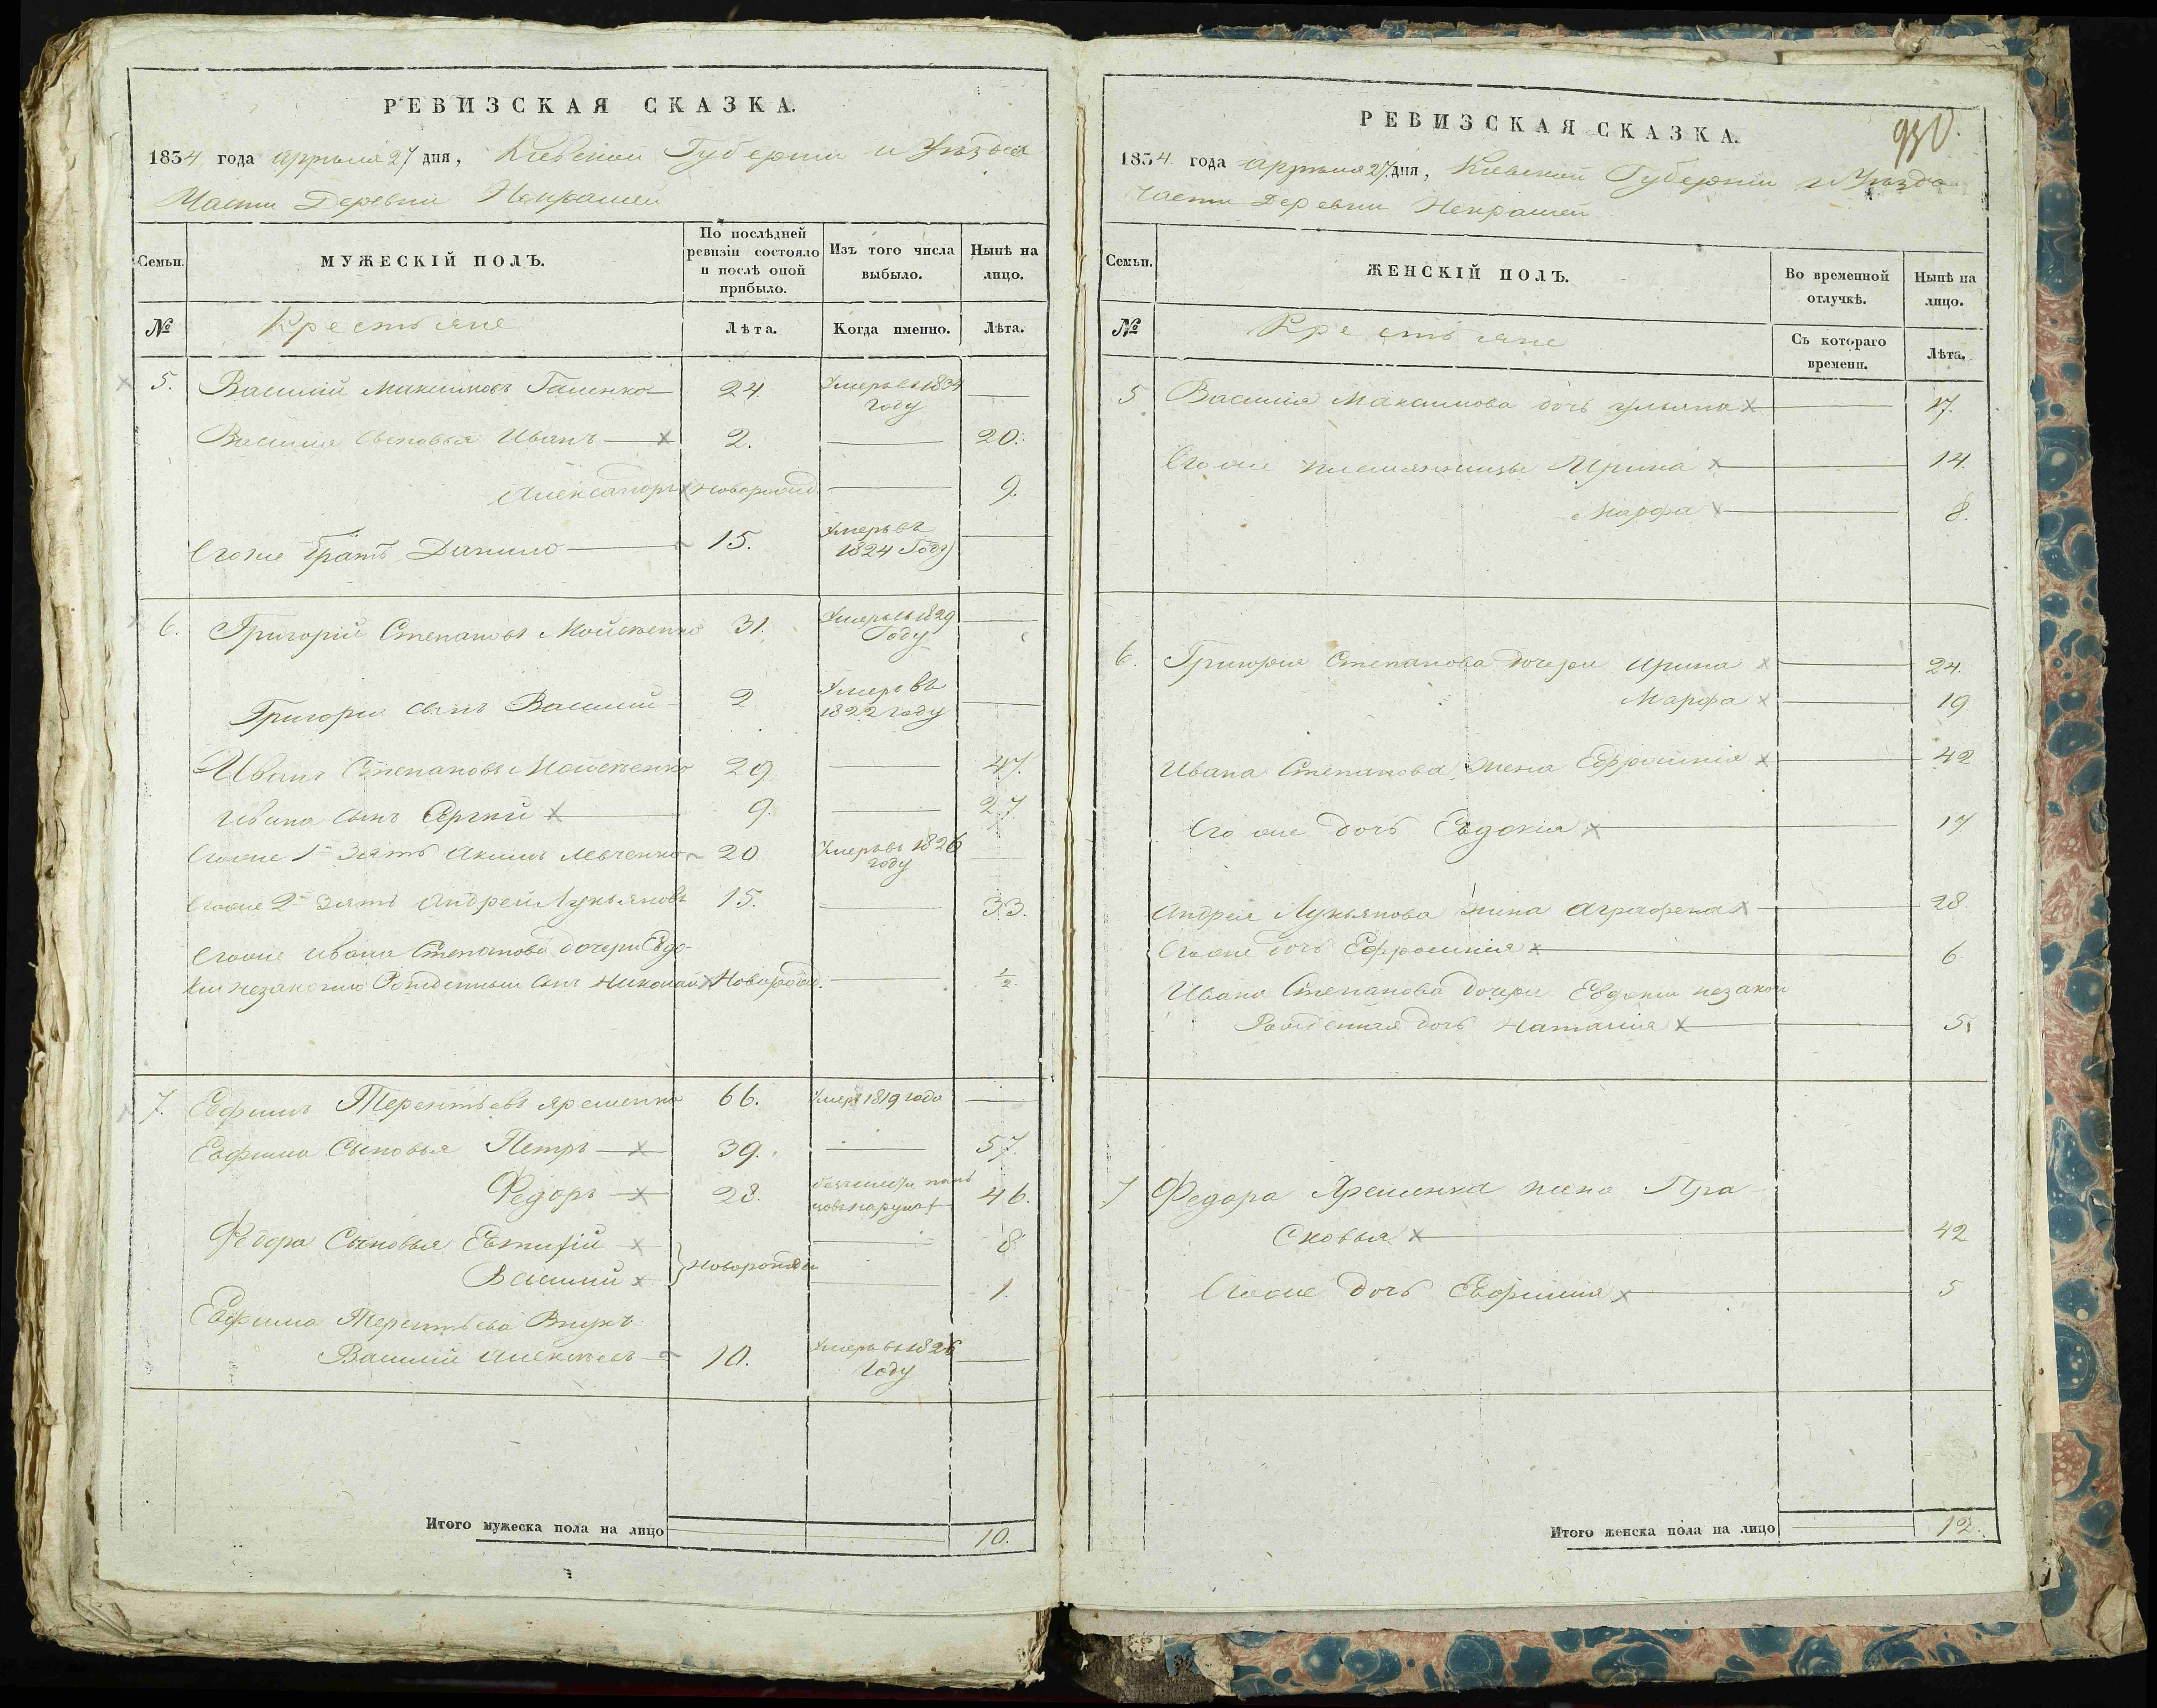 РЕВИЗСКАЯ СКАЗКА.
1834 года апреля 27 дня, Киевской Губернии и Уезда
Части Деревни Некрашей
Семьи.
МУЖЕСКІЙ ПОЛЪ.
По послѣдней ревизіи состояло и послѣ оной прибыло.
Изъ того числа выбыло.
Нынѣ на лицо.
№
Крестьяне
Лѣта.
Когда именно.
Лѣта.
5. Василій Максимовъ 24. Умеръ въ 1834 году —
Василія сыновья Иванъ — 2. — 20.
Александръ новорожд. — 9.
Его же братъ Данило — 15. Умеръ въ 1824 Году —
6. Григорій Степановъ Мойсеенко 31. Умеръ въ 1829 Году —
Григорія сынъ Василий 2 Умеръ въ 1822 году —
Иванъ Степановъ Мойсеенко 29 — 47.
Ивана сынъ Сергий — 9. — 27
Его же 1й зять Акимъ Левченко 20 Умеръ въ 1826 году —
Его же 2й зять Андрей Лукьяновъ 15. — 33.
Его же Ивана Степанова дочери Евдо-
кіи незаконно Рожденный сынъ Николай Новорожд. — ½
7. Евфимъ Терентьевъ Яременко 66. Умеръ 1819 года —
Евфима Сыновья Петръ — 39. — 57.
Федоръ — 28. 46.
Федора Сыновья Евтифій — 8
Василий } новорожден — 1.
Евфима Терентьева Внукъ
Василий Алексеевъ — 10. Умеръ въ 1826 Году —
Итого мужеска пола на лицо 10.
РЕВИЗСКАЯ СКАЗКА.
1834 года апреля 27 дня, Киевской Губернии и Уезда
Части Деревни Некрашей
Семьи.
ЖЕНСКІЙ ПОЛЪ.
Во временной отлучкѣ.
Нынѣ на лицо.
№
Крестьяне
Съ котораго времени.
Лѣта.
5 Василія Максимова дочь Ульяна — 17.
Его же племянницы Ирина — 14.
Марфа — 8.
6. Григорія Степанова дочери Ирина — 24.
Марфа — 19
Ивана Степанова жена Ефросинія — 42
Его же дочь Евдокія — 17
Андрея Лукьянова жена Аграфена — 28.
Его же дочь Ефросинія — 6
Ивана Степанова дочери Евдокіи незакон
Рожденная дочь Наталия — 5.
7 Федора Яременка жена Пра
сковья — 42
Его же дочь Евфимія — 5
Итого женска пола на лицо 12.